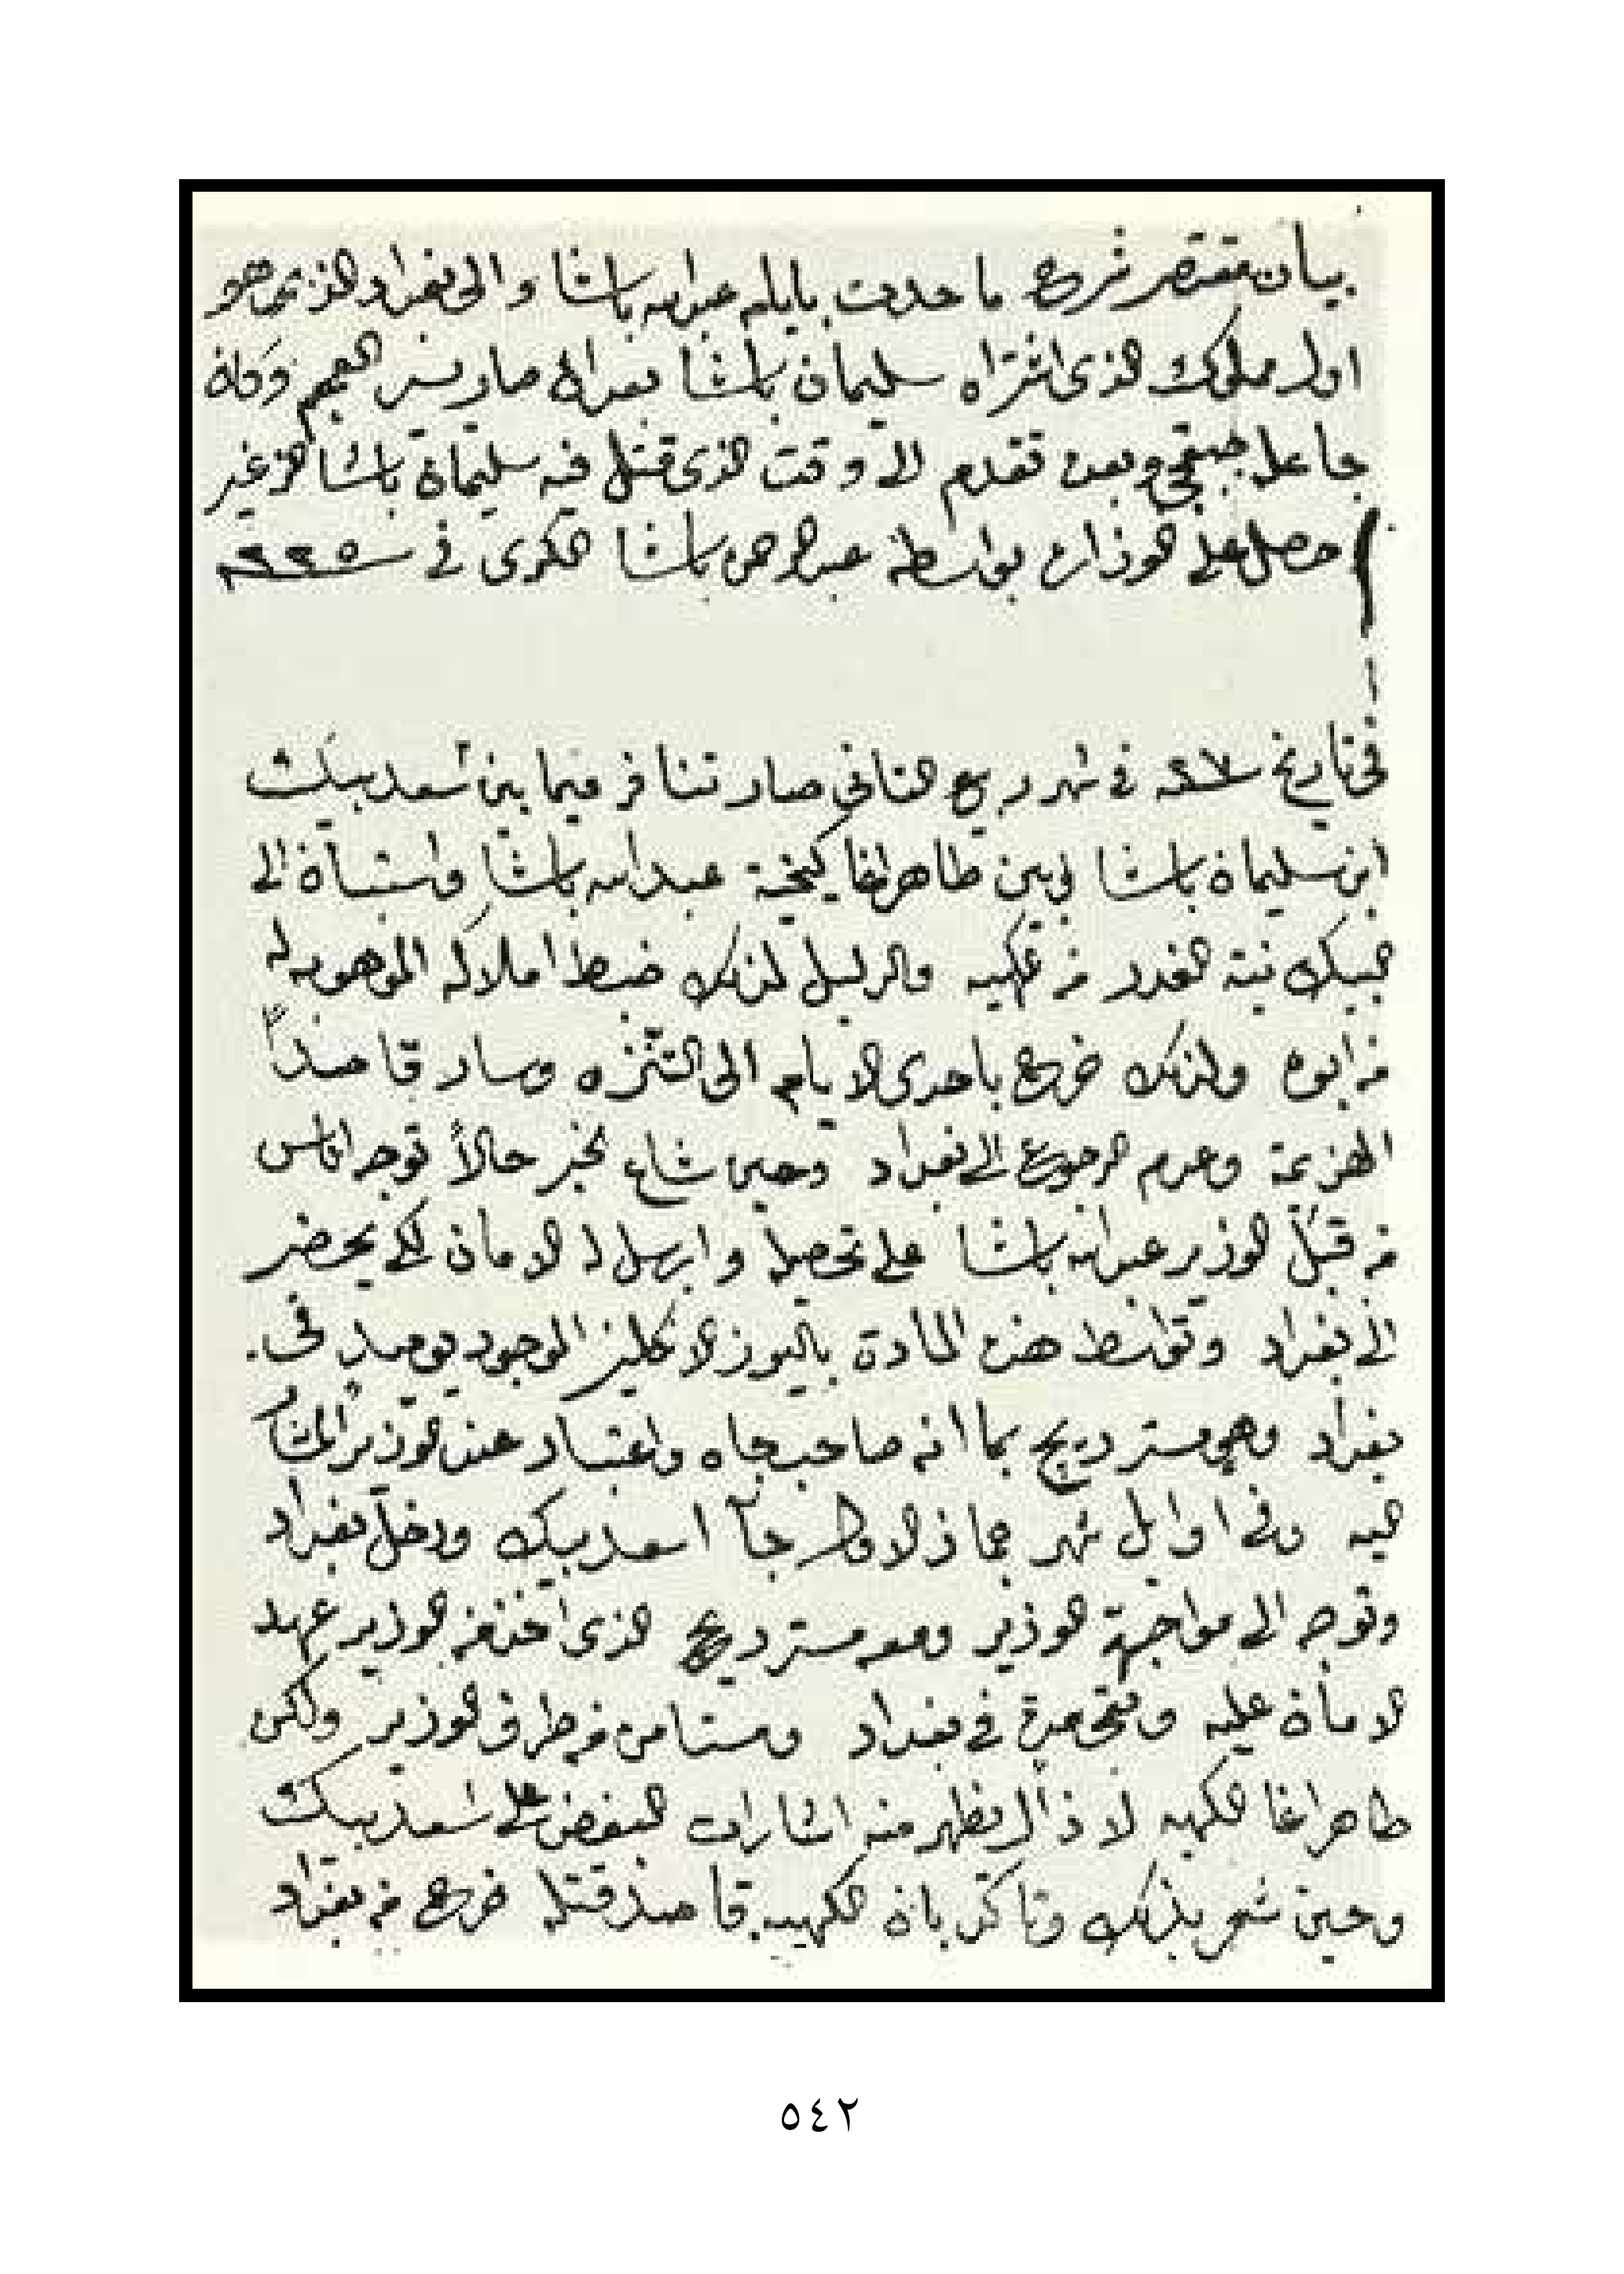 بيان مختصر شرح ما حدث بايام عبدالله باشا والي بغداد الذي هو
اول مملوك الذي اشتراه سليمان باشا بعد انه صار يسير العجم وكان
جاعله جبقجي وبعده تقدم الى وقت الذي قتل فيه سليمان باشا الزغير
حصل على الوزارة بواسطة عبدالرحمن باشا الكردي في سنة ١٢٢٥
في تاريخ ١٢٢٧ في شهر ربيع الثاني صار تنافر فيما بين اسعد بيك
ابن سليمان باشا وبين طاهر اغا كيخية عبدالله باشا واستبان الى
البيك نية الغدر من الكهيه والدليل لذلك ضبط املاكه الموهوبه له
من ابوه ولذلك خرج باحدى الايام الى التنزه وسار قاصداً
الهزيمة وعدم الرجوع الى بغداد وحين شاع الخبر حالاً توجه اناس
من قبل الوزير عبدالله باشا على تحصيله وارسل له الامان لكي يحضر
الى بغداد وتواسط هذه المادة باليوز الانكليز الموجود يوميذ في
بغداد وهو مستر ريج بما انه صاحب جاه واعتبار عند الوزير المشار
اليه وفي اوايل شهر جماذ الاول جا اسعد بيك ودخل بغداد
وتوجه الى مواجهة الوزير ومعه مستر ريج الذي اخذ من الوزير عهد
الامان عليه وبقي مدة في بغداد ومستامن من طرف الوزير ولكن
طاهر اغا الكهيه لا زال يظهر منه اشارات البغض على اسعد بيك
وحين شعر بذلك وتاكد بان الكهيه قاصد قتله خرج من بغداد
٥٤٢